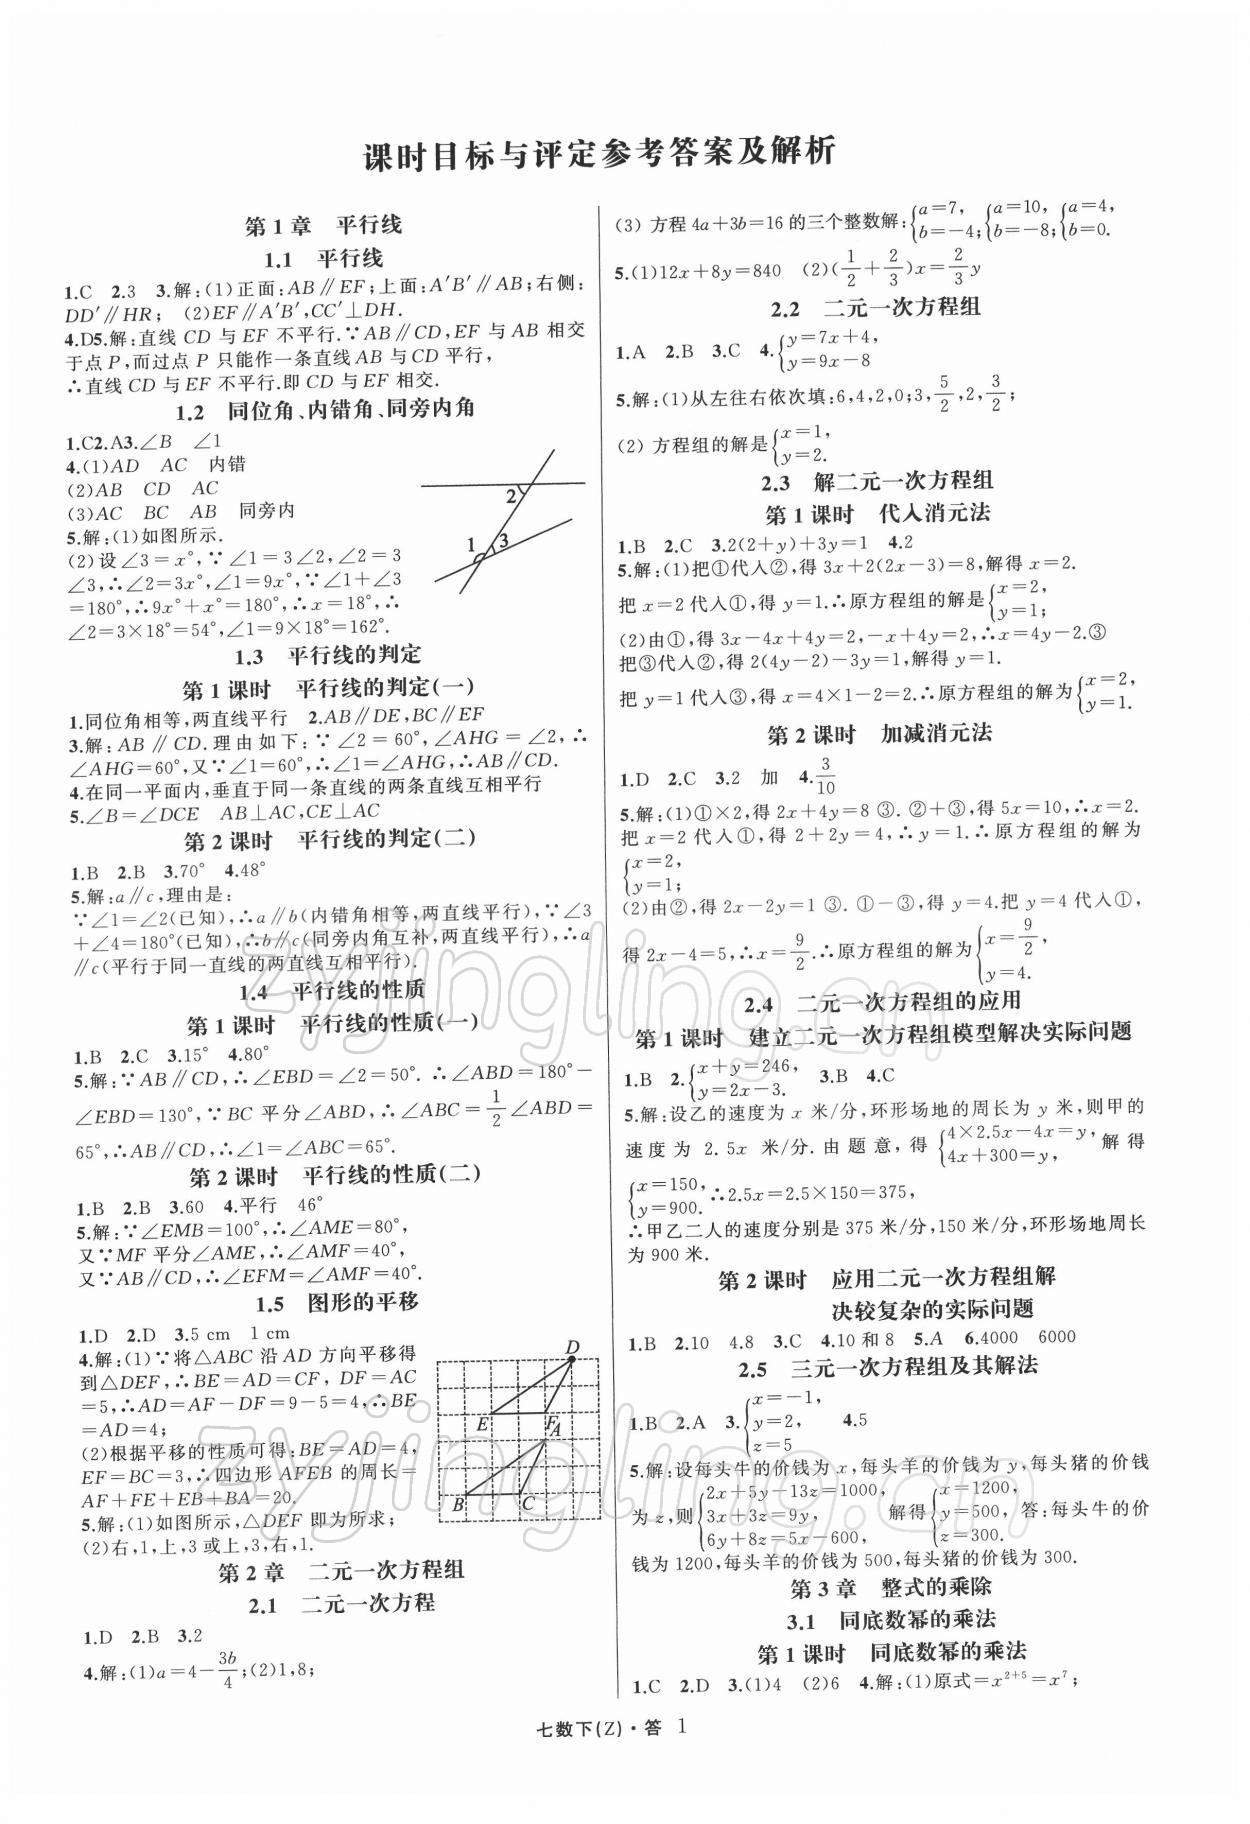 课时目标与评定参考答案及解析
第1章 平行线
1.1 平行线
1.C 2.3 3.解:(1)正面:AB∥EF;上面:A′B′∥AB;右侧:
DD′∥HR; (2)EF∥A′B′,CC′⊥DH.
4.D5.解:直线 CD 与 EF 不平行.∵AB∥CD,EF 与 AB 相交
于点 P,而过点 P 只能作一条直线 AB 与 CD 平行,
∴直线 CD 与 EF 不平行.即 CD 与 EF 相交.
1.2 同位角、内错角、同旁内角
1.C2.A3.∠B ∠1
4.(1)AD AC 内错
(2)AB CD AC
(3)AC BC AB 同旁内
5.解:(1)如图所示.
(2)设∠3=x°,∵∠1=3∠2,∠2=3
∠3,∴∠2=3x°,∠1=9x°,∵∠1+∠3
=180°,∴9x°+x°=180°,∴x=18°,∴
∠2=3×18°=54°,∠1=9×18°=162°.
2
1
3
1.3 平行线的判定
第1课时 平行线的判定(一)
1.同位角相等,两直线平行 2.AB∥DE,BC∥EF
3.解:AB∥CD.理由如下:∵∠2=60°,∠AHG=∠2,∴
∠AHG=60°,又∵∠1=60°,∴∠1=∠AHG,∴AB∥CD.
4.在同一平面内,垂直于同一条直线的两条直线互相平行
5.∠B=∠DCE AB⊥AC,CE⊥AC
第2课时 平行线的判定(二)
1.B 2.B 3.70° 4.48°
5.解:a∥c,理由是:
∵∠1=∠2(已知),∴a∥b(内错角相等,两直线平行),∵∠3
+∠4=180°(已知),∴b∥c(同旁内角互补,两直线平行),∴a
∥c(平行于同一直线的两直线互相平行).
1.4 平行线的性质
第1课时 平行线的性质(一)
1.B 2.C 3.15° 4.80°
5.解:∵AB∥CD,∴∠EBD=∠2=50°.∴∠ABD=180°−
∠EBD=130°,∵BC 平分∠ABD,∴∠ABC=1/2∠ABD=
65°,∴AB∥CD,∴∠1=∠ABC=65°.
第2课时 平行线的性质(二)
1.B 2.B 3.60 4.平行 46°
5.解:∵∠EMB=100°,∴∠AME=80°,
又∵MF 平分∠AME,∴∠AMF=40°,
又∵AB∥CD,∴∠EFM=∠AMF=40°.
1.5 图形的平移
1.D 2.D 3.5 cm 1 cm
4.解:(1)∵将△ABC 沿 AD 方向平移得
到△DEF,∴BE=AD=CF, DF=AC
=5,∴AD=AF−DF=9−5=4,∴BE
=AD=4;
(2)根据平移的性质可得:BE=AD=4,
EF=BC=3,∴四边形 AFEB 的周长=
AF+FE+EB+BA=20.
5.解:(1)如图所示,△DEF 即为所求;
(2)右,1,上,3或上,3,右,1.
D
E
F
A
B
C
第2章 二元一次方程组
2.1 二元一次方程
1.D 2.B 3.2
4.解:(1)a=4−3b/4;(2)1,8;
(3)方程 4a+3b=16 的三个整数解:{a=7, b=−4; {a=10, b=−8; {a=4, b=0.
5.(1)12x+8y=840 (2)(1/2+2/3)x=2/3y
2.2 二元一次方程组
1.A 2.B 3.C 4.{y=7x+4, y=9x−8
5.解:(1)从左往右依次填:6,4,2,0;3,5/2,2,3/2;
(2)方程组的解是{x=1, y=2.
2.3 解二元一次方程组
第1课时 代入消元法
1.B 2.C 3.2(2+y)+3y=1 4.2
5.解:(1)把①代入②,得 3x+2(2x−3)=8,解得 x=2.
把 x=2 代入①,得 y=1.∴原方程组的解是{x=2, y=1;
(2)由①,得 3x−4x+4y=2,−x+4y=2,∴x=4y−2.③
把③代入②,得 2(4y−2)−3y=1,解得 y=1.
把 y=1 代入③,得 x=4×1−2=2.∴原方程组的解为{x=2, y=1.
第2课时 加减消元法
1.D 2.C 3.2 加 4.3/10
5.解:(1)①×2,得 2x+4y=8 ③.②+③,得 5x=10,∴x=2.
把 x=2 代入①,得 2+2y=4,∴y=1.∴原方程组的解为
{x=2, y=1;
(2)由②,得 2x−2y=1 ③.①−③,得 y=4.把 y=4 代入①,
得 2x−4=5,∴x=9/2.∴原方程组的解为{x=9/2, y=4.
2.4 二元一次方程组的应用
第1课时 建立二元一次方程组模型解决实际问题
1.B 2.{x+y=246, y=2x−3. 3.B 4.C
5.解:设乙的速度为 x 米/分,环形场地的周长为 y 米,则甲的
速度为 2.5x 米/分.由题意,得{4×2.5x−4x=y, 4x+300=y, 解得
{x=150, y=900. ∴2.5x=2.5×150=375,
∴甲乙二人的速度分别是 375 米/分,150 米/分,环形场地周长
为 900 米.
第2课时 应用二元一次方程组解
决较复杂的实际问题
1.B 2.10 4.8 3.C 4.10 和 8 5.A 6.4000 6000
2.5 三元一次方程组及其解法
1.B 2.A 3.{x=−1, y=2, z=5 4.5
5.解:设每头牛的价钱为 x,每头羊的价钱为 y,每头猪的价钱
为 z,则{2x+5y−13z=1000, 3x+3z=9y, 6y+8z=5x−600, 解得{x=1200, y=500, z=300. 答:每头牛的价
钱为 1200,每头羊的价钱为 500,每头猪的价钱为 300.
第3章 整式的乘除
3.1 同底数幂的乘法
第1课时 同底数幂的乘法
1.C 2.D 3.(1)4 (2)6 4.解:(1)原式=x²⁺⁵=x⁷;
七数下(Z)·答 1
zyjingling.cn
zyjingling.cn